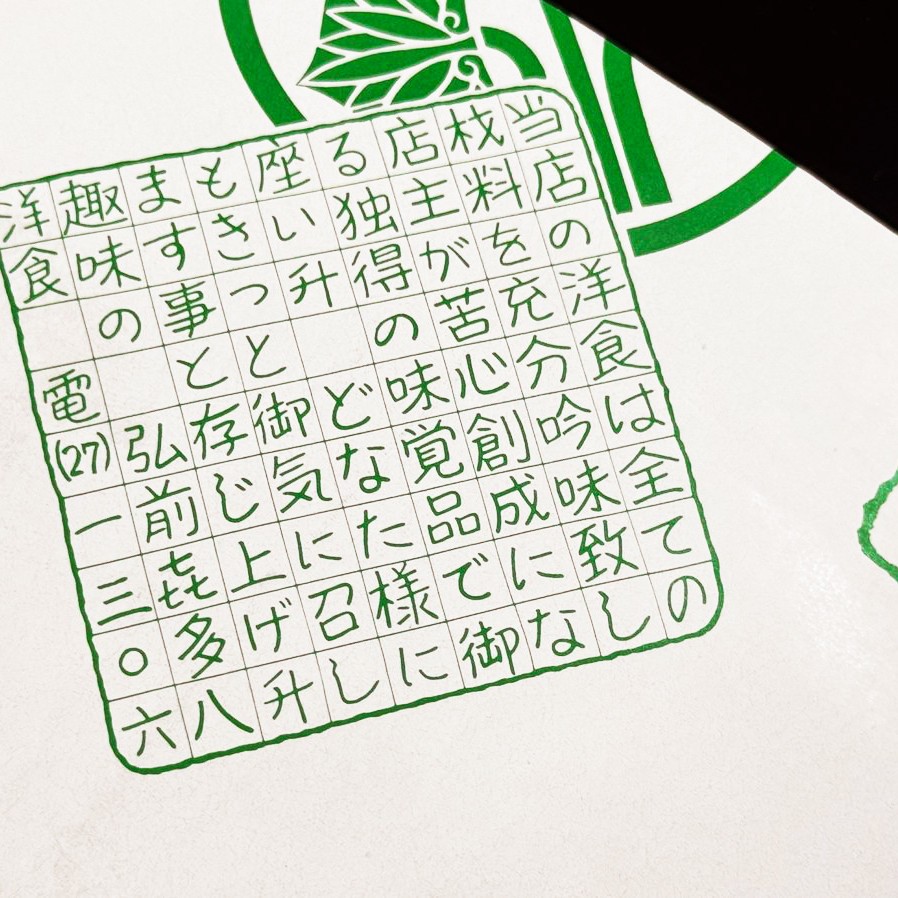 当店の洋食は全ての
材料を充分吟味致し
店主が苦心創成にな
る独得の味覚品で御
座い升 どなた様に
もきっと御気に召し
ます事と存じ上げ升
趣味の 弘前㐂多八
洋食 電(27)一三〇六